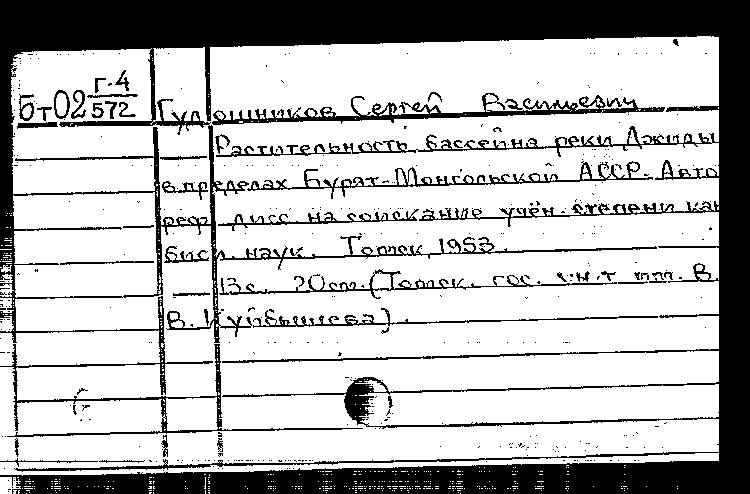 Г-4
Бт02 572 Гудошников Сергей Васильевич
Растительность бассейна реки Джиды
в пределах Бурят-Монгольской АССР. Авто
реф. дисс. на соискание учён. степени кан
биол. наук. Томск, 1953.
13с. 20см. (Томск. гос. ун-т им. В.
В. Куйбышева).